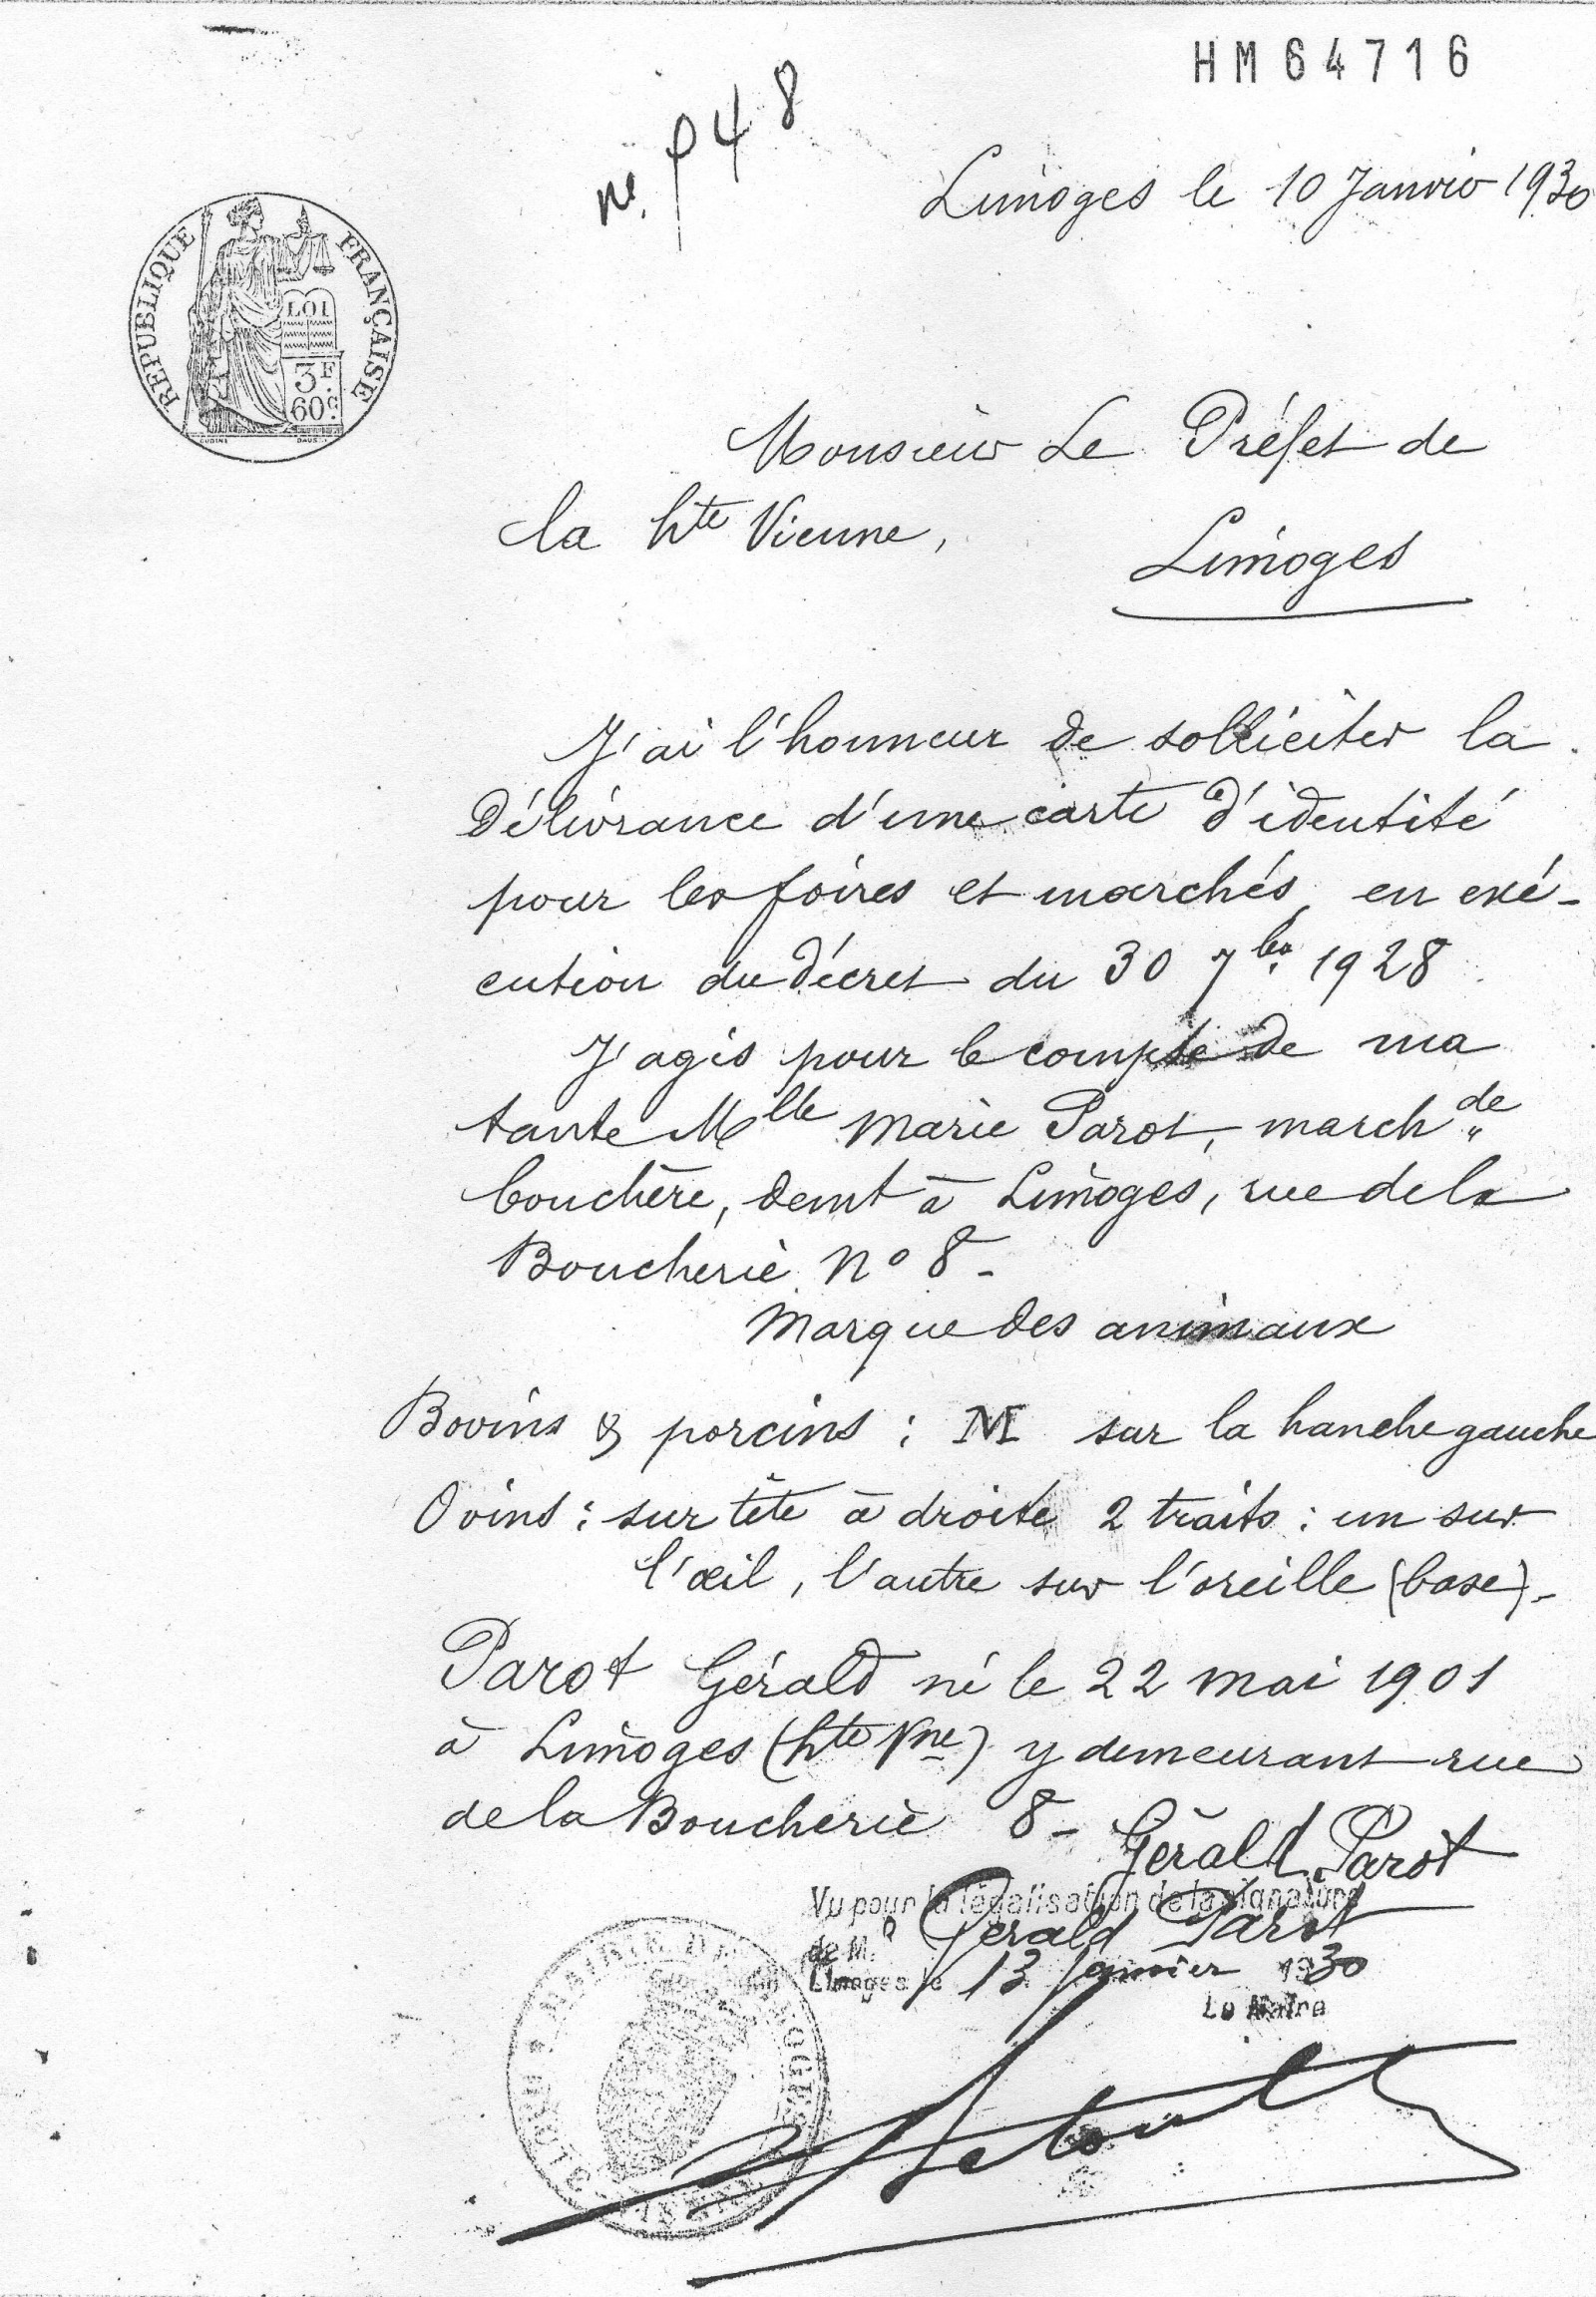 HM64716
n° P48
Limoges le 10 Janvier 1930
REPUBLIQUE FRANÇAISE
LOI
3F
60c
Monsieur Le Préfet de
la hte Vienne,
Limoges
J'ai l'honneur de solliciter la
délivrance d'une carte d'identité
pour les foires et marchés, en exé-
cution du décret du 30 7bre 1928
J'agis pour le compte de ma
tante Mlle Marie Parot, marchde
bouchère, demt à Limoges, rue de la
Boucherie No 8 -
Marque des animaux
Bovins & porcins : M sur la hanche gauche
Ovins : sur tête à droite 2 traits : un sur
l'œil, l'autre sur l'oreille (base) -
Parot Gérald né le 22 mai 1901
à Limoges (hte Vne) y demeurant rue
de la Boucherie 8 -
Gérald Parot
Vu pour la légalisation de la signature
de M. Gérald Parot
Limoges le 13 Janvier 1930
Le Maire